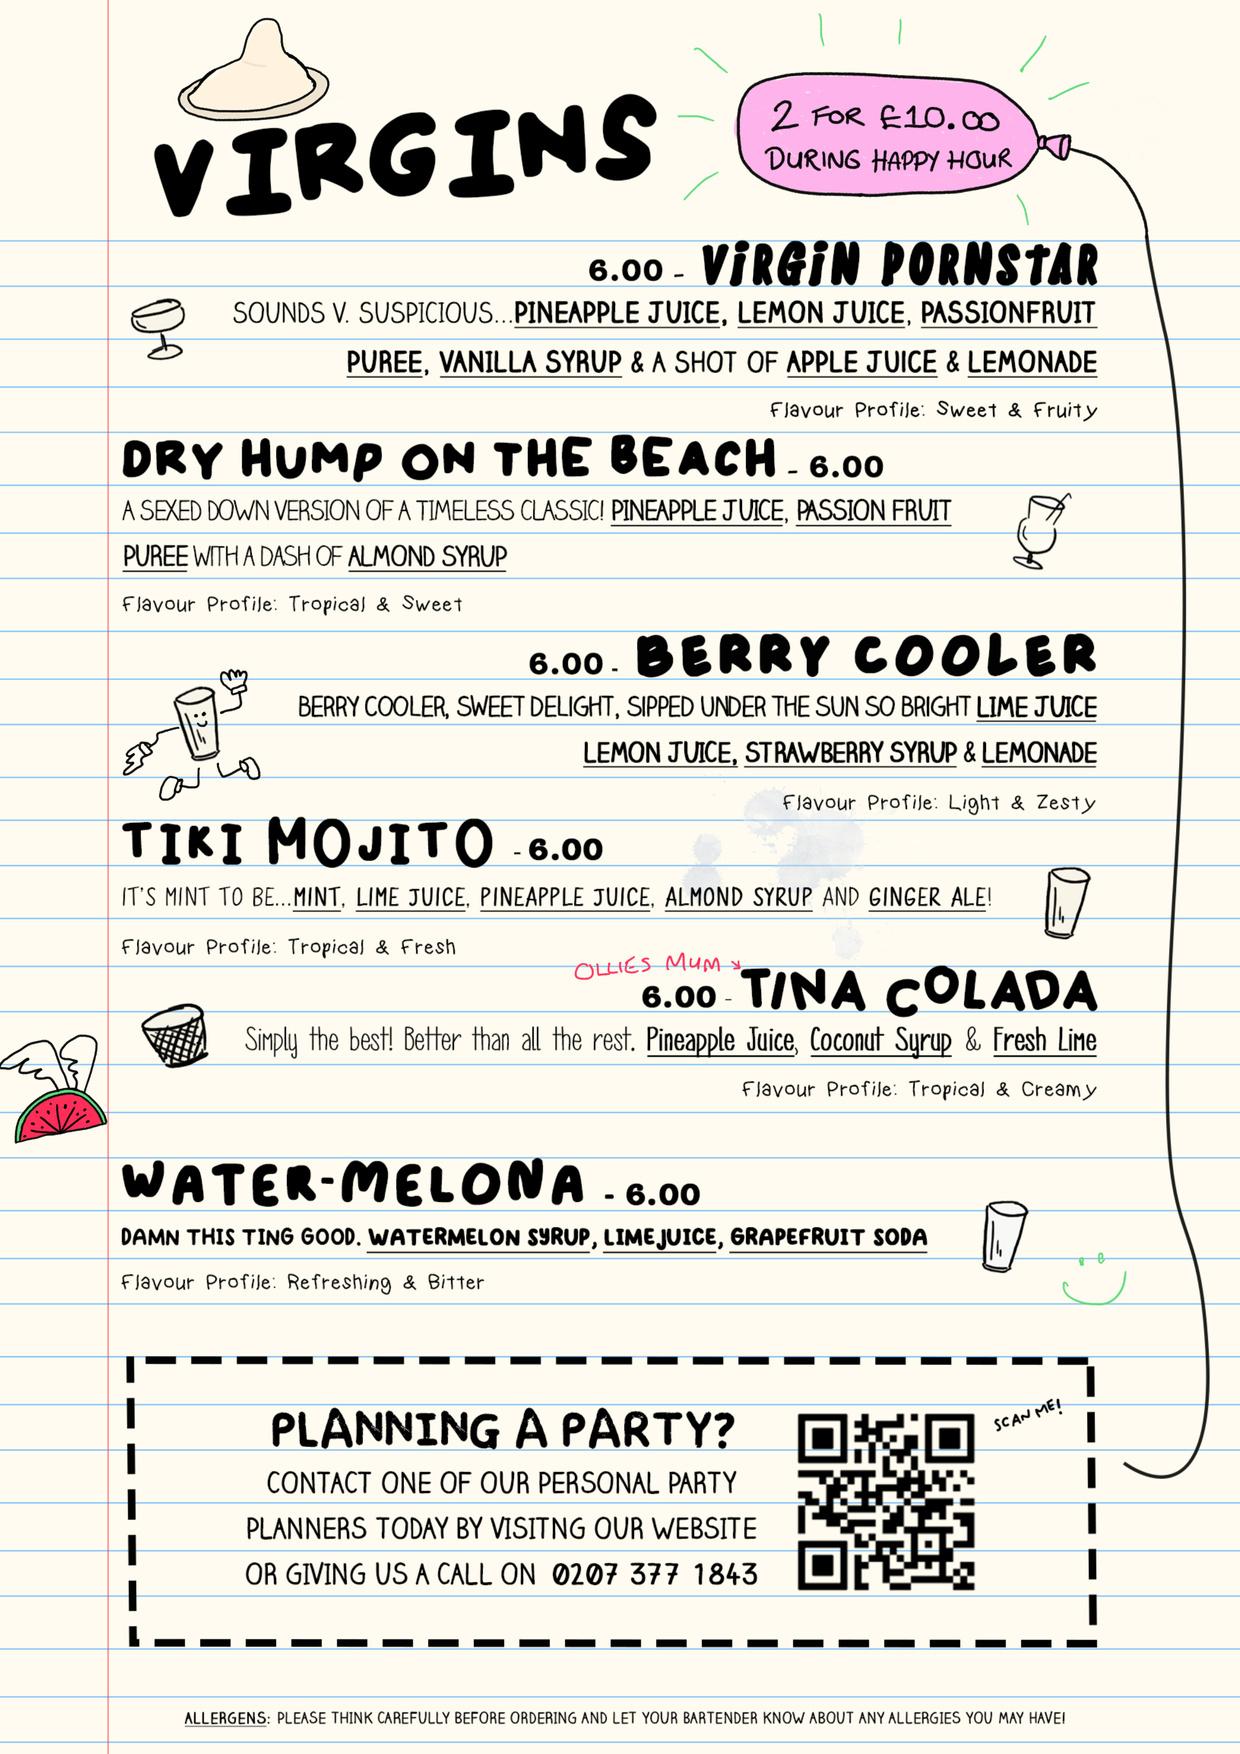 VIRGINS
2 FOR £10.00
DURING HAPPY HOUR
6.00 - VIRGIN PORNSTAR
SOUNDS V. SUSPICIOUS...PINEAPPLE JUICE, LEMON JUICE, PASSIONFRUIT
PUREE, VANILLA SYRUP & A SHOT OF APPLE JUICE & LEMONADE
Flavour Profile: Sweet & Fruity
DRY HUMP ON THE BEACH - 6.00
A SEXED DOWN VERSION OF A TIMELESS CLASSIC! PINEAPPLE JUICE, PASSION FRUIT
PUREE WITH A DASH OF ALMOND SYRUP
Flavour Profile: Tropical & Sweet
6.00 - BERRY COOLER
BERRY COOLER, SWEET DELIGHT, SIPPED UNDER THE SUN SO BRIGHT LIME JUICE
LEMON JUICE, STRAWBERRY SYRUP & LEMONADE
Flavour Profile: Light & Zesty
TIKI MOJITO - 6.00
IT'S MINT TO BE...MINT, LIME JUICE, PINEAPPLE JUICE, ALMOND SYRUP AND GINGER ALE!
Flavour Profile: Tropical & Fresh
OLLIES MUM
6.00 - TINA COLADA
Simply the best! Better than all the rest. Pineapple Juice, Coconut Syrup & Fresh Lime
Flavour Profile: Tropical & Creamy
WATER-MELONA - 6.00
DAMN THIS TING GOOD. WATERMELON SYRUP, LIMEJUICE, GRAPEFRUIT SODA
Flavour Profile: Refreshing & Bitter
PLANNING A PARTY?
CONTACT ONE OF OUR PERSONAL PARTY
PLANNERS TODAY BY VISITNG OUR WEBSITE
OR GIVING US A CALL ON 0207 377 1843
SCAN ME!
ALLERGENS: PLEASE THINK CAREFULLY BEFORE ORDERING AND LET YOUR BARTENDER KNOW ABOUT ANY ALLERGIES YOU MAY HAVE!